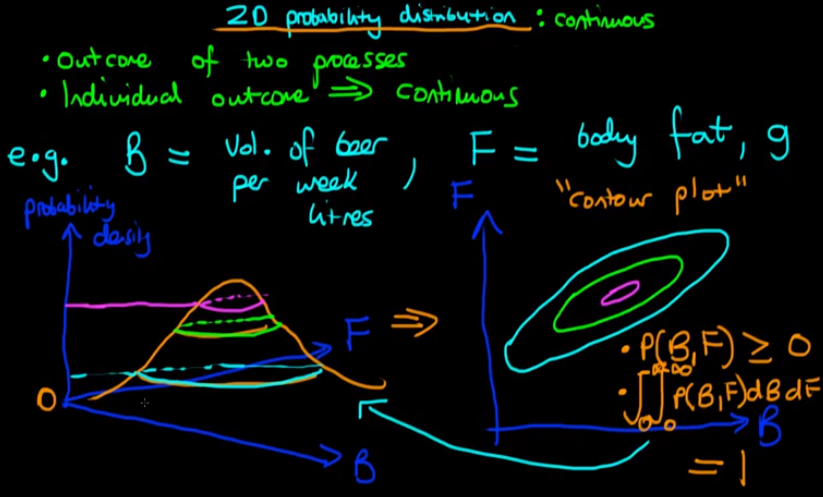 2D probability distribution : continuous
• Outcome of two processes
• Individual outcome ⇒ continuous
e.g. B = Vol. of beer per week litres , F = body fat, g
"contour plot"
probability density
F
B
0
⇒
F
B
• P(B,F) ≥ 0
• ∫₀^∞ ∫₀^∞ P(B,F) dB dF
= 1